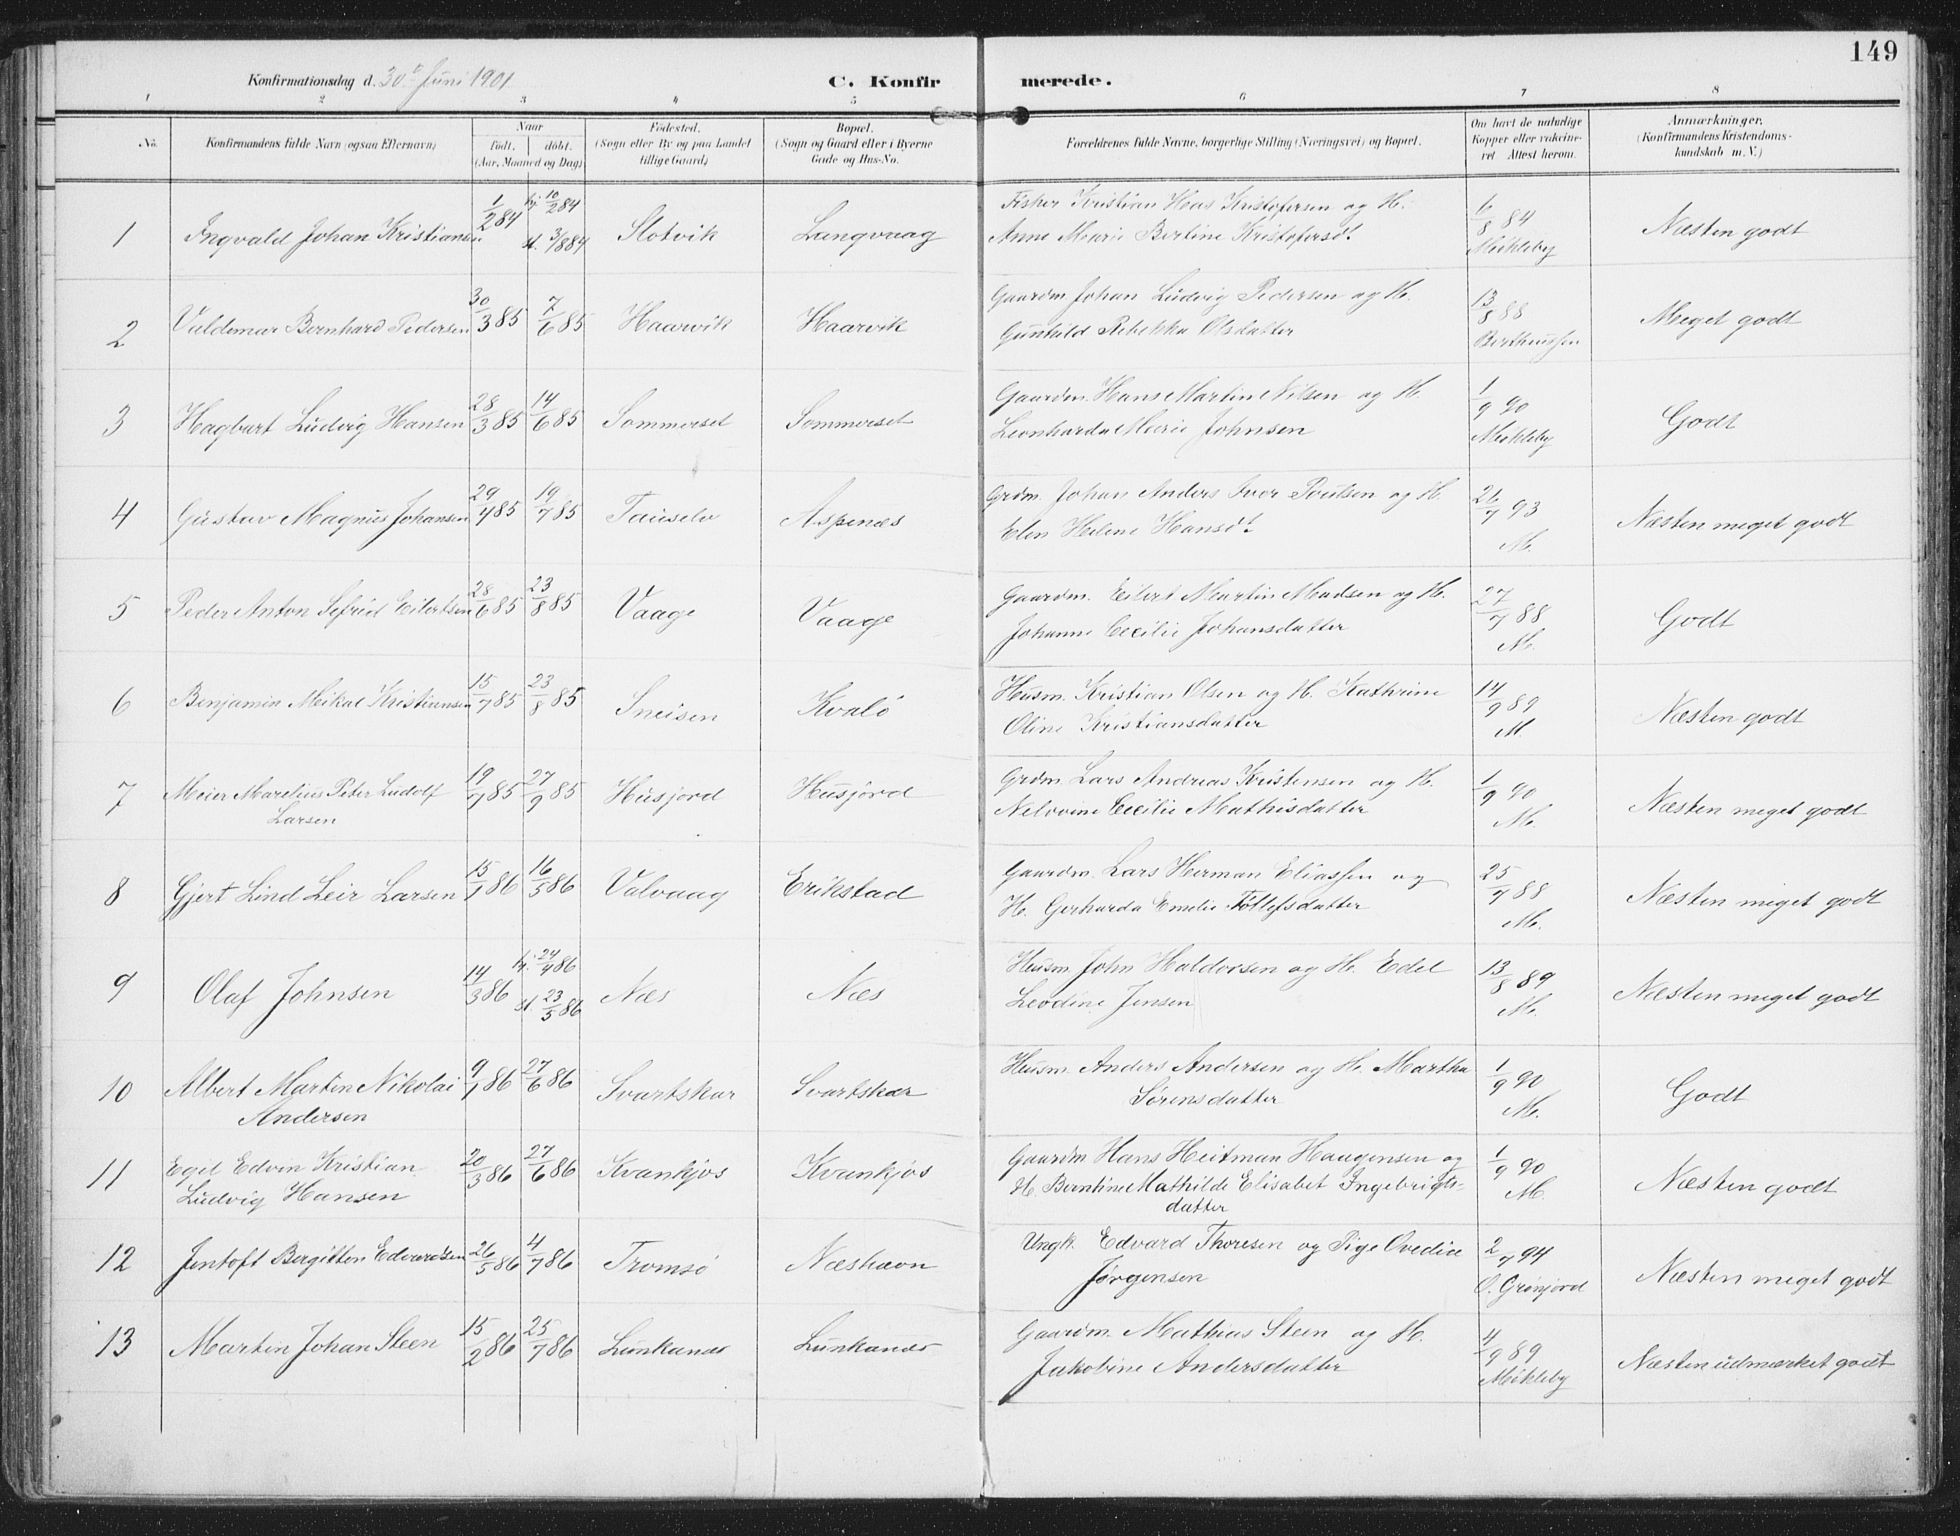 149
Konfirmationsdag d. 30te Juni 1901
C. Konfirmerede.
1 2 3 4 5 6 7 8
No. Konfirmandens fulde Navn (ogsaa Efternavn) Naar født. døbt. (Aar, Maaned og Dag) Fødested. (Sogn eller By og paa Landet tillige Gaard) Bopæl. (Sogn og Gaard eller i Byerne Gade og Hus-No. Forældrenes fulde Navne, borgerlige Stilling (Næringsvei) og Bopæl. Om havt de naturlige Kopper eller vakcineret Attest herom. Anmærkninger. (Konfirmandens Kristendomskundskab m. V.)
1 Ingvald Johan Kristiansen 1/2 84 hj. 10/2 84 st. 3/8 84 Slotvik Langvaag Fisker Kristian Hoas Kristofersen og H. Anne Marie Bertine Kristofersdt. 6/8 84 Mökleby Næsten godt
2 Valdemar Bernhard Pedersen 30/3 85 7/6 85 Haarvik Haarvik Gaardm. Johan Ludvig Pedersen og H. Gunhild Rebekka Olsdatter 13/8 88 Bertheussen Meget godt
3 Hagbart Ludvig Hansen 28/3 85 14/6 85 Sommerset Sommerset Gaardm. Hans Martin Nilsen og H. Leonharda Marie Johnsen 1/9 90 Mökleby Godt
4 Gustav Magnus Johansen 29/4 85 19/7 85 Tauselv Aspenæs Grdm. Johan Anders Ivar Poulsen og H. Elen Helene Hansdt. 26/7 93 M. Næsten meget godt
5 Peder Anton Sefrid Eilertsen 28/6 85 23/8 85 Vaage Vaage Gaardm. Eilert Martin Madsen og H. Johanne Cecilie Johansdatter 27/7 88 M. Godt
6 Benjamin Meikal Kristiansen 15/7 85 23/8 85 Sneisen Kvalö Husm. Kristian Olsen og H. Kathrine Oline Kristiansdatter 14/9 89 M. Næsten godt
7 Meier Marelius Peter Ludolf Larsen 19/7 85 27/9 85 Husjord Husjord Grdm. Lars Andreas Kristensen og H. Nelovine Cecilie Mathisdatter 1/9 90 M. Næsten meget godt
8 Gjert Lind Leir Larsen 15/1 86 16/5 86 Valvaag Erikstad Gaardm. Lars Herman Eliassen og H. Gerharda Emelie Tollefsdatter 25/7 88 M. Næsten meget godt
9 Olaf Johnsen 14/3 86 hj. 24/4 86 st. 23/5 86 Næs Næs Husm. John Haldorsen og H. Edel Leodine Jensen 13/8 89 M. Næsten meget godt
10 Albert Martin Nikolai Andersen 9/1 86 27/6 86 Svartskar Svartskar Husm. Anders Andersen og H. Martha Sörensdatter 1/9 90 M. Godt
11 Egil Edvin Kristian Ludvig Hansen 20/3 86 27/6 86 Kvankjos Kvankjos Gaardm Hans Heitman Haagensen og H. Berntine Mathilde Elisabet Ingebrigtsdatter 1/9 90 M. Næsten godt
12 Jentoft Bergitton Edvardsen 26/5 86 4/7 86 Tromsö Næshavn Ungk. Edvard Thoresen og Pige Ovedie Jørgensen 2/7 94 O. Grönjord Næsten meget godt
13 Martin Johan Steen 15/2 86 25/7 86 Lunkanæs Lunkanæs Gaardm. Mathias Steen og H. Jakobine Andersdatter 4/9 89 Mökleby Næsten udmærket godt